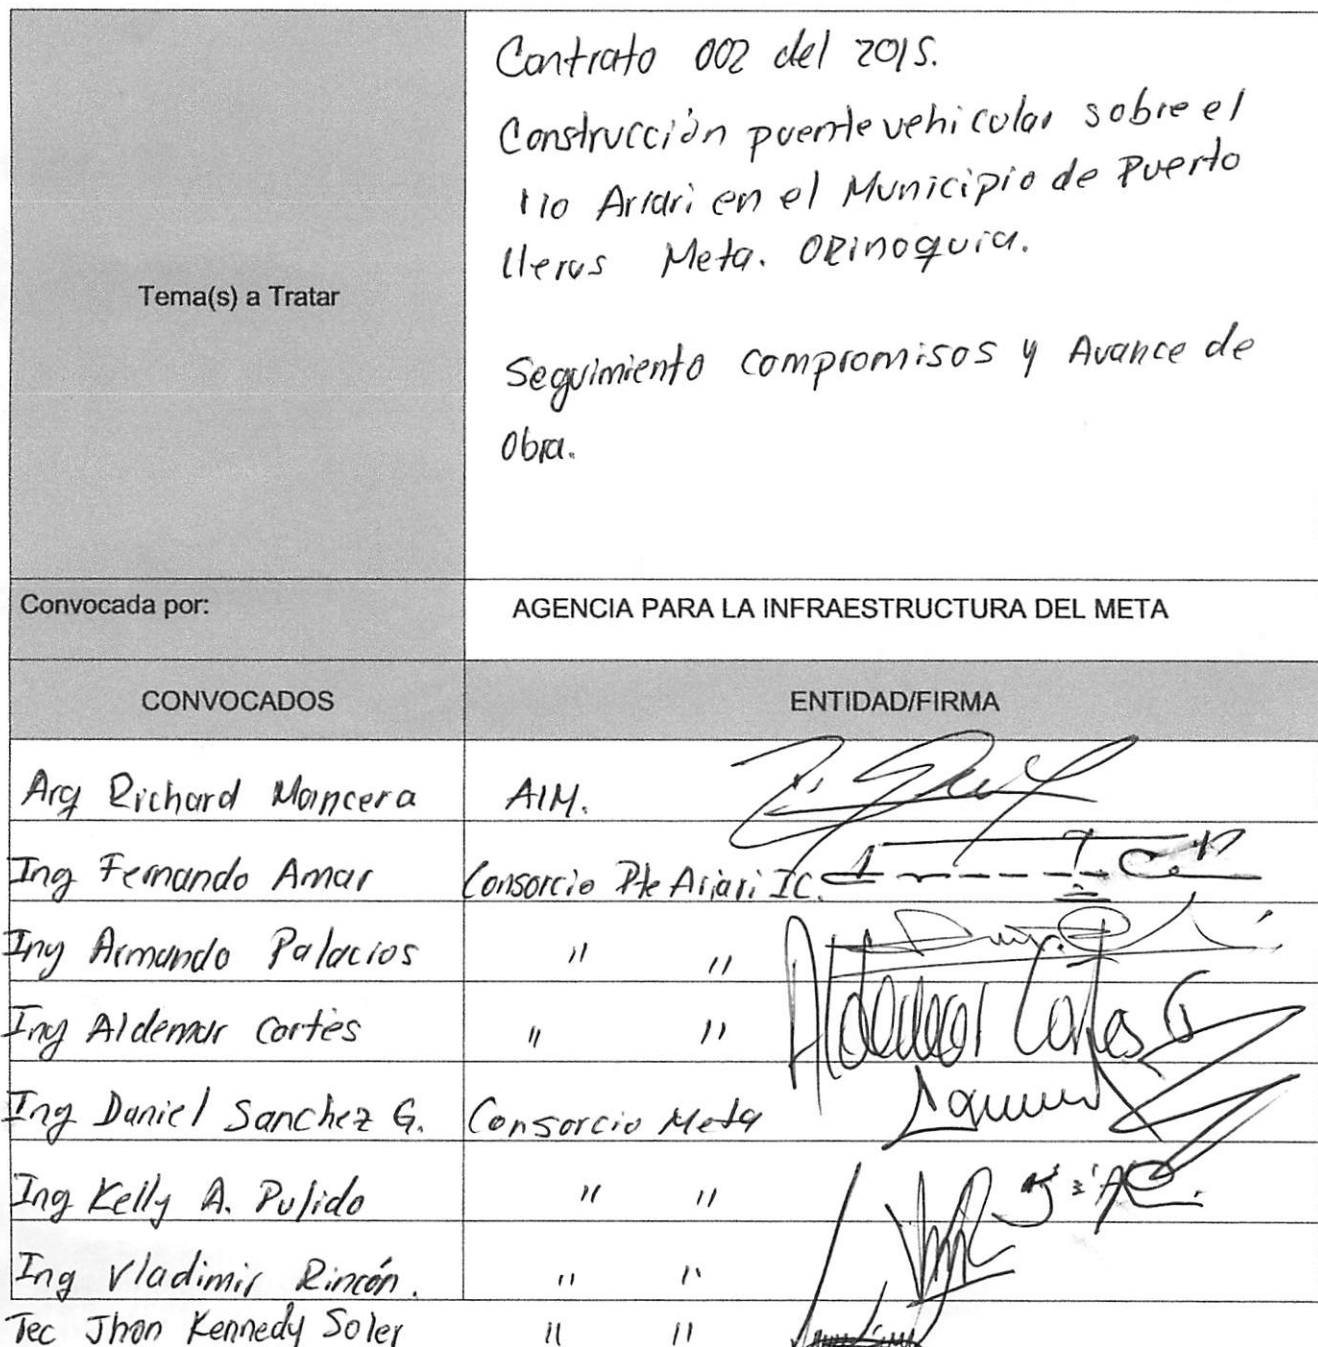 Contrato 002 del 2015.
Construcción puente vehicular sobre el
rio Ariari en el Municipio de Puerto
lleras Meta. ORINOQUIA.
Tema(s) a Tratar
Seguimiento compromisos y Avance de
Obra.
Convocada por: AGENCIA PARA LA INFRAESTRUCTURA DEL META
CONVOCADOS ENTIDAD/FIRMA
Arq Richard Mancera AIM.
Ing Fernando Amar Consorcio Pte Ariari IC.
Ing Armando Palacios " "
Ing Aldemar Cortès " " Aldemar Cortes G
Ing Daniel Sanchez G. Consorcio Meta
Ing Kelly A. Pulido " "
Ing Vladimir Rincón. " "
Tec Jhon Kennedy Soler " "